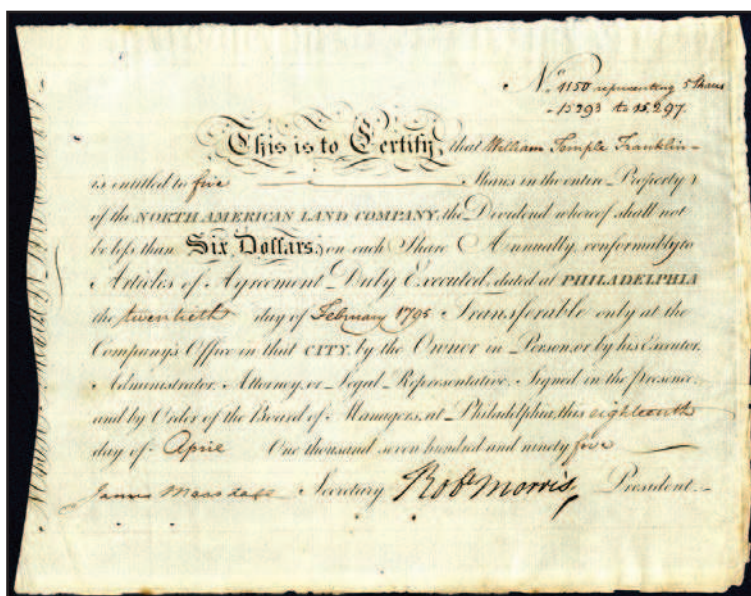 No. 1150 representing 5 Shares
15293 to 15,297.
This is to Certify, that William Temple Franklin
is entitled to five Shares in the entire Property
of the NORTH AMERICAN LAND COMPANY, the Dividend whereof shall not
be less than Six Dollars, on each Share Annually, conformably to
Articles of Agreement Duly Executed, dated at PHILADELPHIA
the twentieth day of February 1795 Transferable only at the
Company's Office in that CITY, by the Owner in Person, or by his Executor,
Administrator, Attorney, or Legal Representative. Signed in the presence,
and by Order of the Board of Managers, at Philadelphia, this eighteenth
day of April One thousand seven hundred and ninety five
James Secretary Robt Morris President